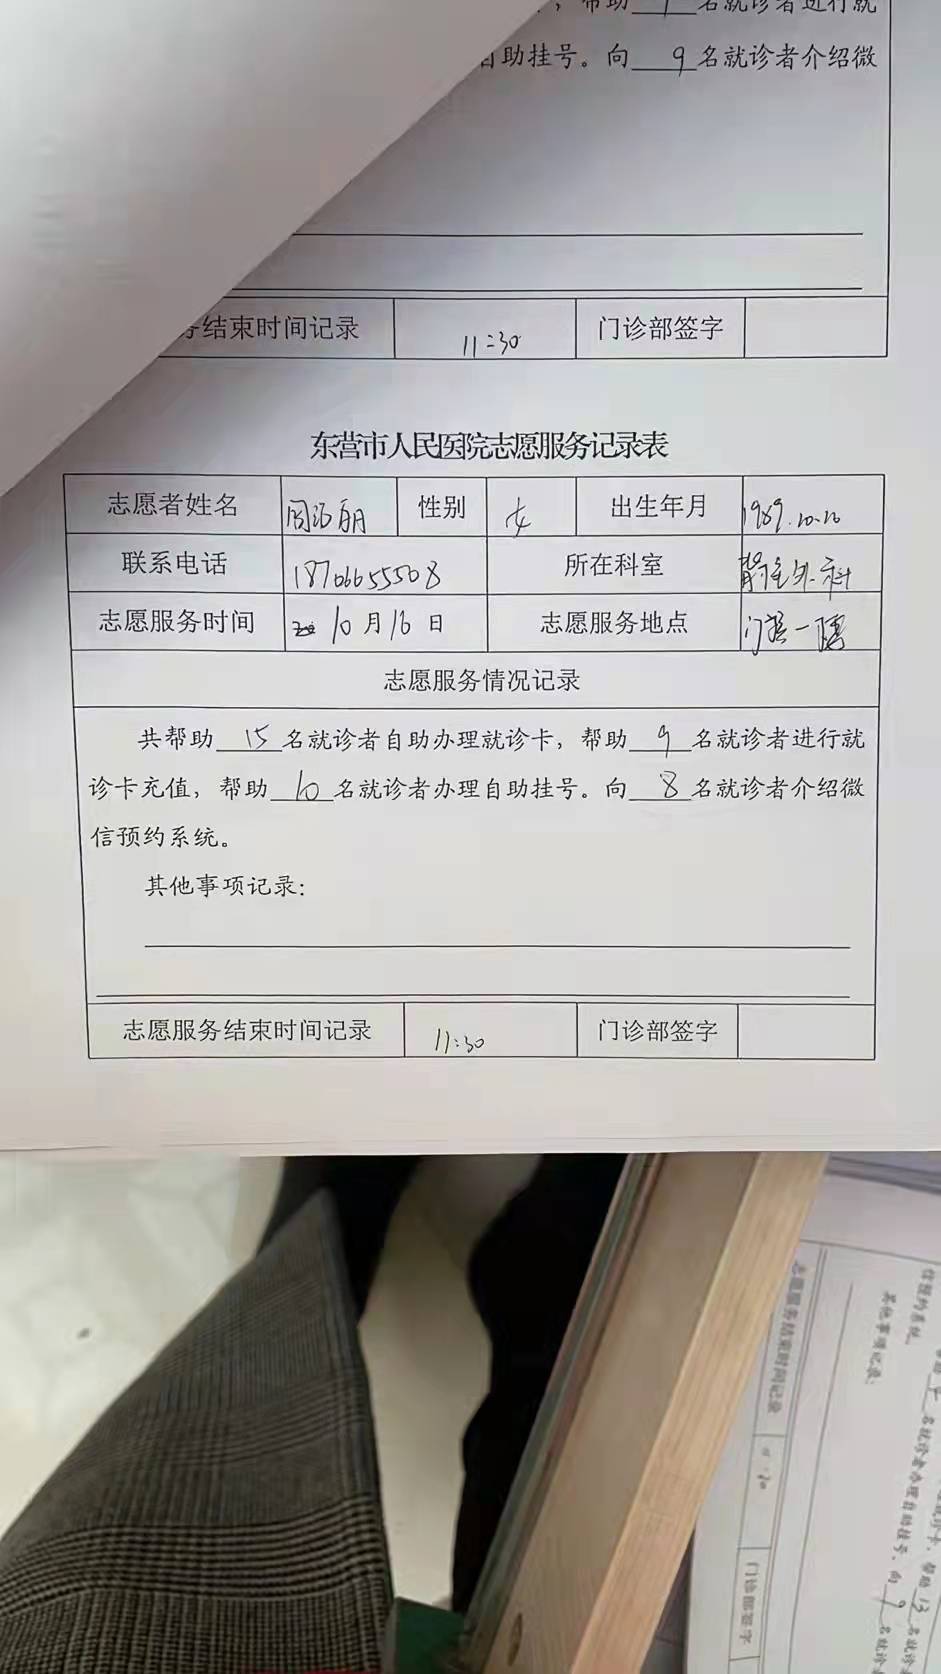 ，帮助 名就诊者进行就
自助挂号。向 9 名就诊者介绍微
务结束时间记录 11:30 门诊部签字
东营市人民医院志愿服务记录表
志愿者姓名 性别 女 出生年月 1989.10.10
联系电话 18706655508 所在科室 外科
志愿服务时间 10月16日 志愿服务地点 门诊一楼
志愿服务情况记录
共帮助 15 名就诊者自助办理就诊卡，帮助 9 名就诊者进行就
诊卡充值，帮助 10 名就诊者办理自助挂号。向 8 名就诊者介绍微
信预约系统。
其他事项记录：
志愿服务结束时间记录 11:30 门诊部签字
信预约系统。
其他事项记录：
志愿服务结束时间记录 门诊部签字